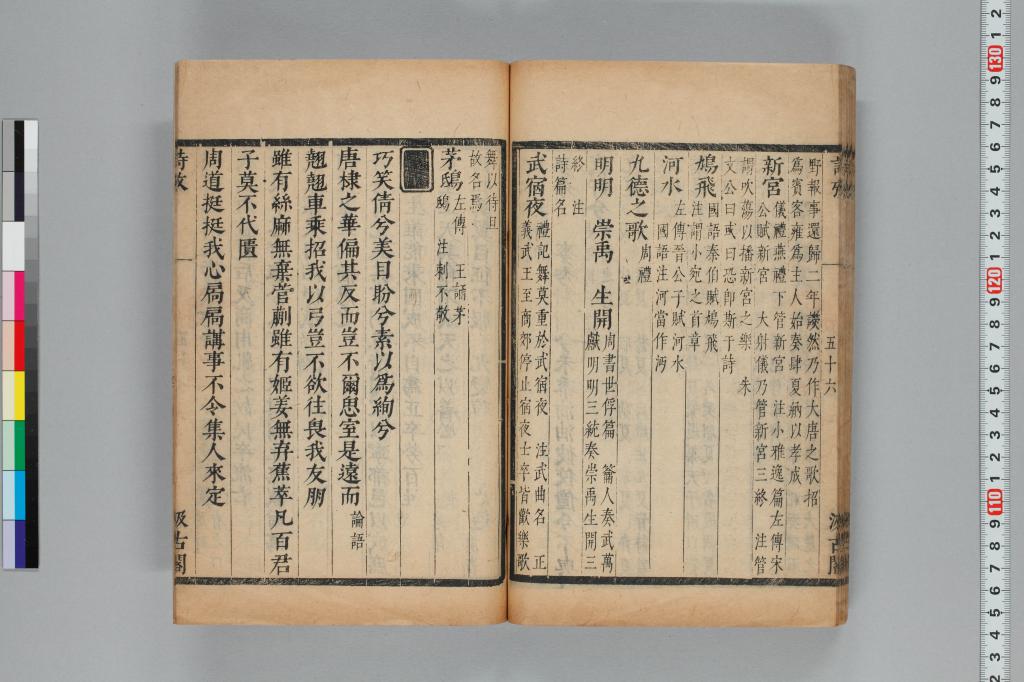 野報事還歸二年談然乃作大唐之歌招
爲賓客雍爲主人始奏肆夏納以孝成
新宮
儀禮燕禮下管新宮 注小雅逸篇左傳宋
公賦新宮 大射儀乃管新宮三終 注管
謂吹蕩以播新宮之樂 朱
文公曰或曰恐卽斯干詩
鳩飛
國語秦伯賦鳩飛
注謂小宛之首章
河水
左傳晉公子賦河水
國語注河當作沔
九德之歌 周禮
明明 崇禹 生開
周書世俘篇 籥人奏武萬
獻明明三統奏崇禹生開三
終 注
詩篇名
武宿夜
禮記舞莫重於武宿夜 注武曲名 正
義武王至商郊停止宿夜士卒皆歡樂歌
舞以待旦
故名焉
茅鴟
左傳 王誦茅
鴟 注刺不敬
巧笑倩兮美目盼兮素以爲絢兮
唐棣之華偏其反而豈不爾思室是遠而 論語
翹翹車乘招我以弓豈不欲往畏我友朋
雖有絲麻無棄菅蒯雖有姬姜無弃蕉萃凡百君
子莫不代匱
周道挺挺我心扃扃講事不令集人來定
詩攷
一
汲古閣
五十六